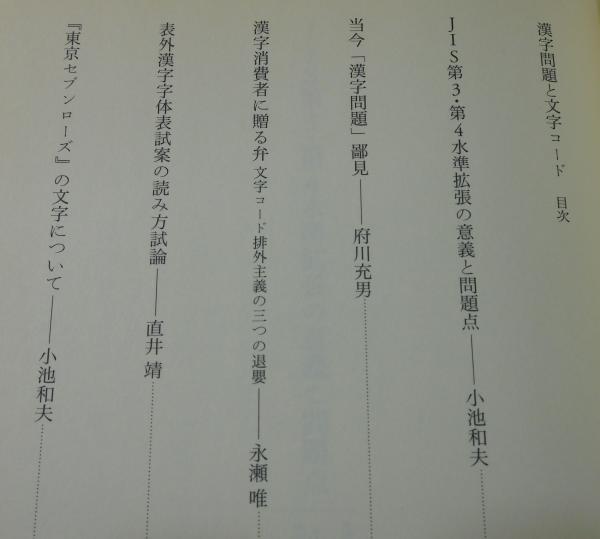 漢字問題と文字コード　目次
JIS第3・第4水準拡張の意義と問題点――小池和夫
当今「漢字問題」鄙見――府川充男
漢字消費者に贈る弁 文字コード排外主義の三つの退嬰――永瀬 唯
表外漢字字体表試案の読み方試論――直井 靖
『東京セブンローズ』の文字について――小池和夫